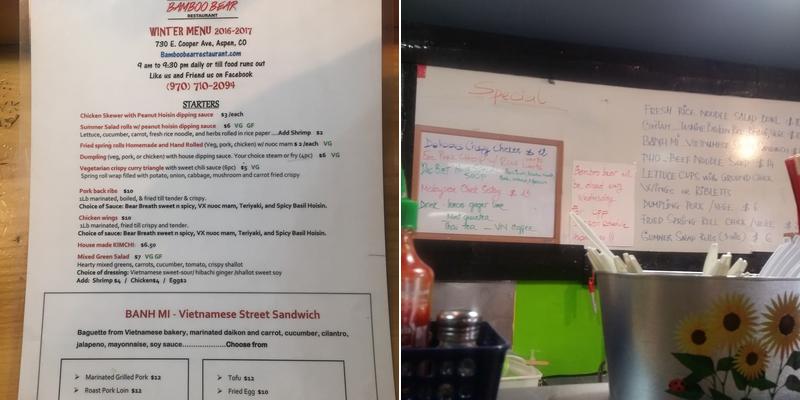 BAMBOO BEAR
RESTAURANT
WINTER MENU 2016-2017
730 E. Cooper Ave, Aspen, CO
Bamboobearrestaurant.com
9 am to 9:30 pm daily or till food runs out
Like us and Friend us on Facebook
(970) 710-2094
STARTERS
Chicken Skewer with Peanut Hoisin dipping sauce $3 /each
Summer Salad rolls w/ peanut hoisin dipping sauce $6 VG GF
Lettuce, cucumber, carrot, fresh rice noodle, and herbs rolled in rice paper ....Add Shrimp $2
Fried spring rolls Homemade and Hand Rolled (Veg, pork, chicken) w/ nuoc mam $2 /each VG
Dumpling (veg, pork, or chicken) with house dipping sauce. Your choice steam or fry (4pc) $6 VG
Vegetarian crispy curry triangle with sweet chili sauce (6pc) $5 VG
Spring roll wrap filled with potato, onion, cabbage, mushroom and carrot fried crispy
Pork back ribs $10
1Lb marinated, boiled, & fried till tender & cripsy.
Choice of Sauce: Bear Breath sweet n spicy, VX nuoc mam, Teriyaki, and Spicy Basil Hoisin.
Chicken wings $10
1Lb marinated, fried till crispy and tender.
Choice of sauce: Bear Breath sweet n spicy, VX nuoc mam, Teriyaki, and Spicy Basil Hoisin.
House made KIMCHI: $6.50
Mixed Green Salad $7 VG GF
Hearty mixed greens, carrots, cucumber, tomato, crispy shallot
Choice of dressing: Vietnamese sweet-sour/ hibachi ginger /shallot sweet soy
Add: Shrimp $4 / Chicken$4 / Egg$2
BANH MI - Vietnamese Street Sandwich
Baguette from Vietnamese bakery, marinated daikon and carrot, cucumber, cilantro,
jalapeno, mayonnaise, soy sauce....................Choose from
Marinated Grilled Pork $12
Roast Pork Loin $12
Tofu $12
Fried Egg $10
Special
Crispy Chicken $
Soup
Drink
Thai tea VN coffee
be closed
Wednesday
FRESH RICE NOODLE SALAD BOWL $
BANH MI - VIETNAMESE
PHO - BEEF NOODLE SOUP $ 14
LETTUCE CUPS with GROUND CHICK
WINGS or RIBLETTS
DUMPLING PORK / VEGE $ 6
FRIED SPRING ROLL CHICK / VEGE
SUMMER SALAD ROLLS $ 6